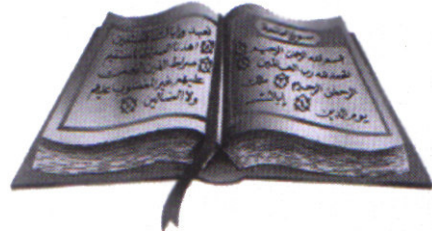 بسم الله الرحمن الرحيم
الحمد لله رب العالمين
الرحمن الرحيم ملك
يوم الدين إياك
نعبد وإياك نستعين
اهدنا الصراط المستقيم
صراط الذين أنعمت
عليهم غير المغضوب عليهم
ولا الضالين